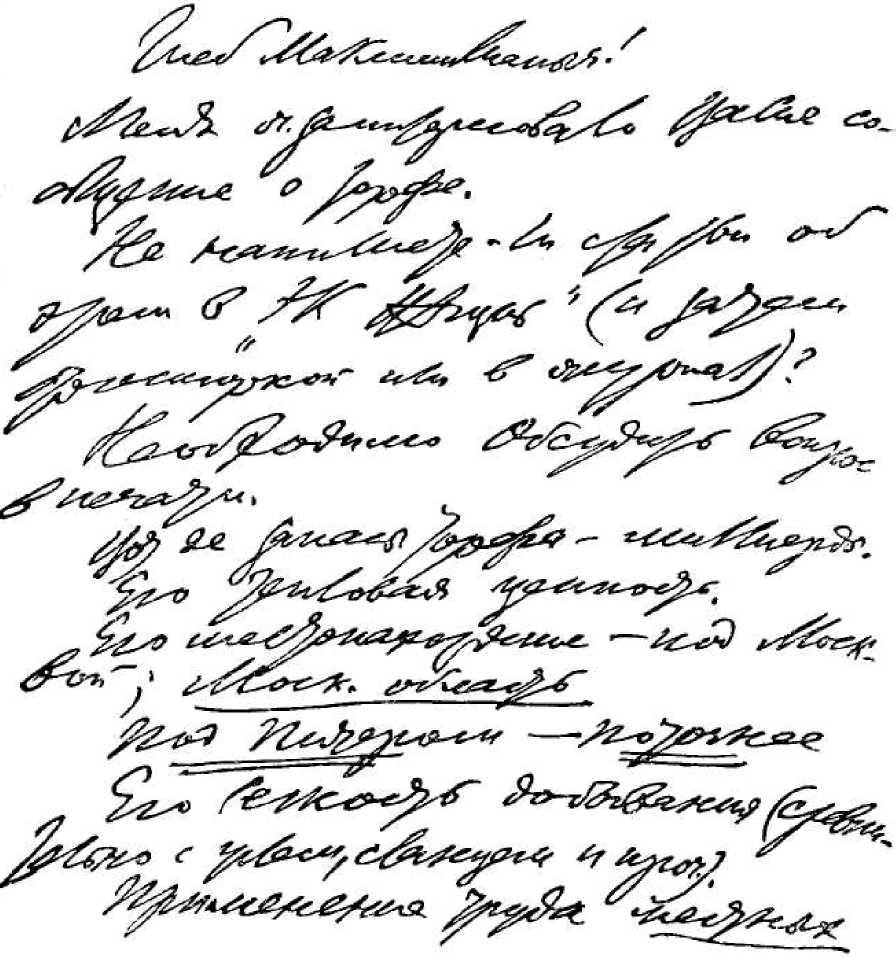 Глеб Максимилианыч!
Меня оч. заинтересовало Ваше со-
общение о торфе.
Не напишете-ли статьи об
этом в „Эк Жизнь“ (и затем
брошюркой или в журнал)?
Необходимо обсудить вопрос
в печати.
Вот де запасы торфа — миллиарды.
Его тепловая ценность.
Его местонахождение — под Моск-
вой; Моск. область
Под Питером — поточнее
Его легкость добывания (сравни-
тельно с углем, сланцем и проч.).
Применение труда местных